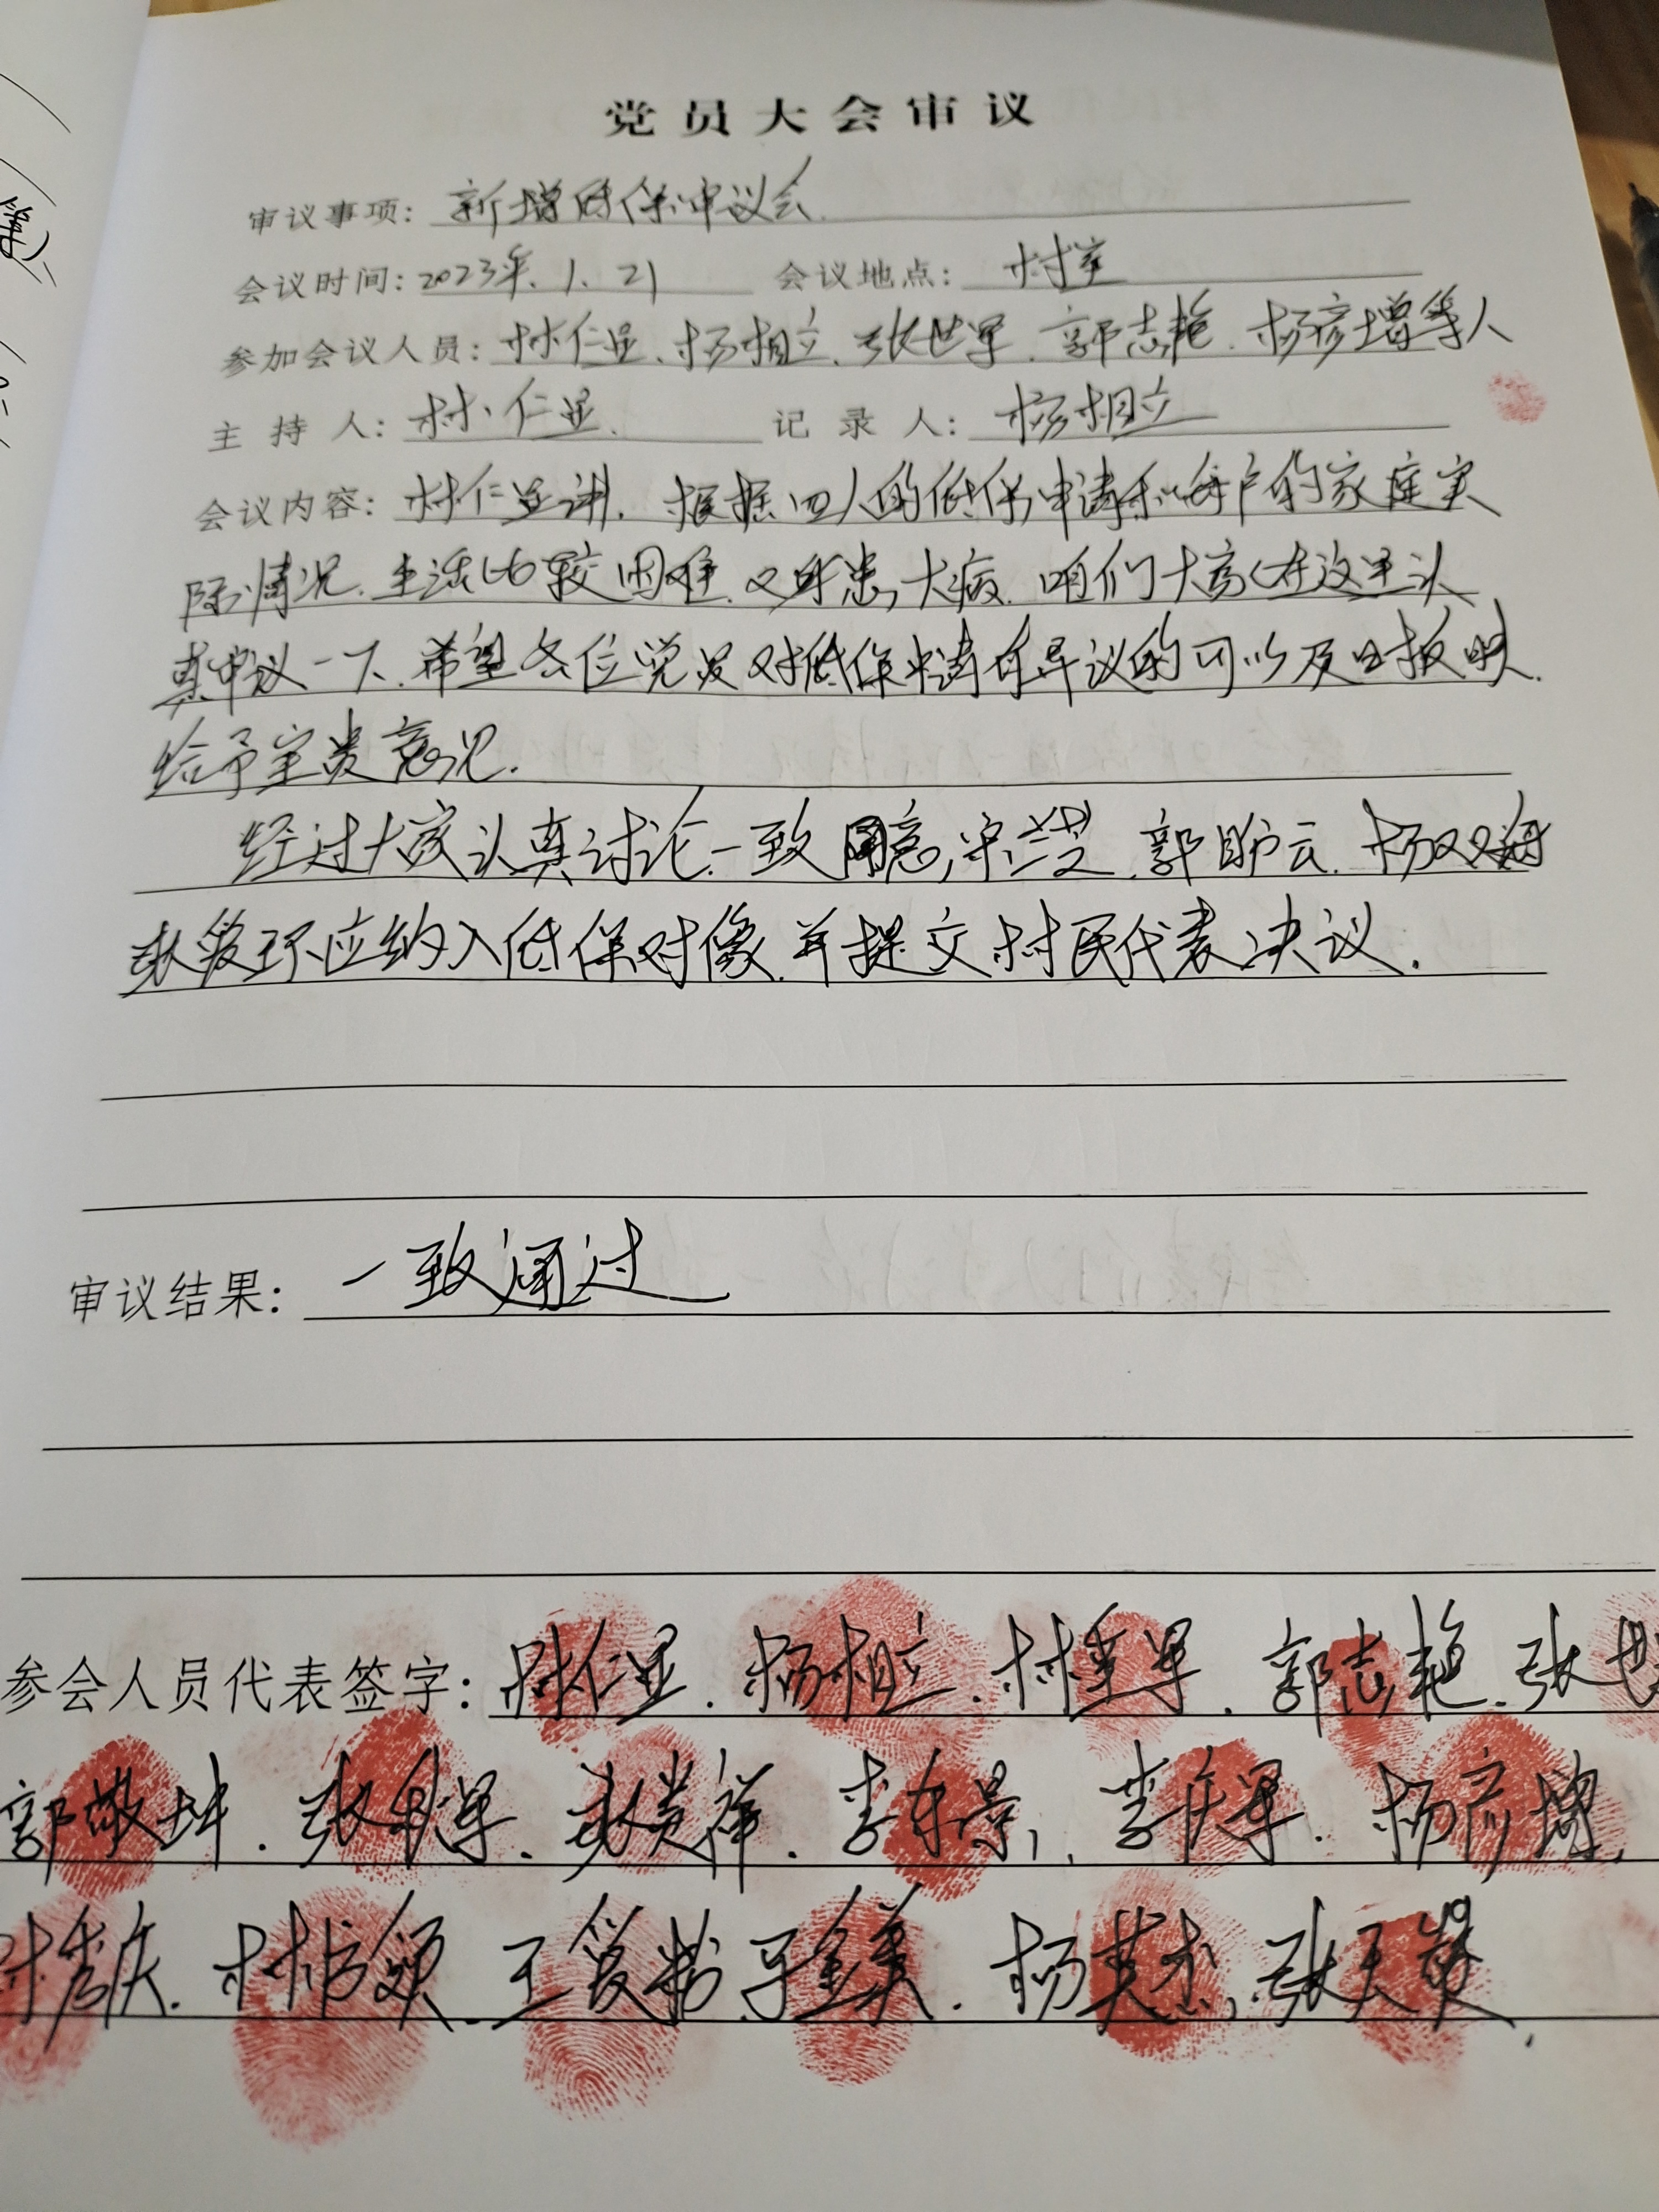 党员大会审议
审议事项: 新增低保审议会
会议时间: 2023年.1.21 会议地点: 村室
参加会议人员: 林仁显、杨相立、张世军、郭志艳、杨彦增等人
主持人: 林仁显 记录人: 杨相立
会议内容: 林仁显讲、根据四人的低保申请和每户的家庭实
际情况、生活比较困难、又身患大病、咱们大家在这里认
真审议一下、希望各位党员对低保申请有异议的可以及时报映.
给予宝贵意见.
经过大家认真讨论、一致同意 郭 云、杨双
爱环应纳入低保对像、并提交村民代表决议.
审议结果: 一致通过
参会人员代表签字: 林仁显、杨相立、林 军、郭志艳、张世
郭敬坤、张 军、 贵祥、李东景、李庆军、杨彦增、
秀庆、林 领、王爱粉、 金美、杨英杰、张天